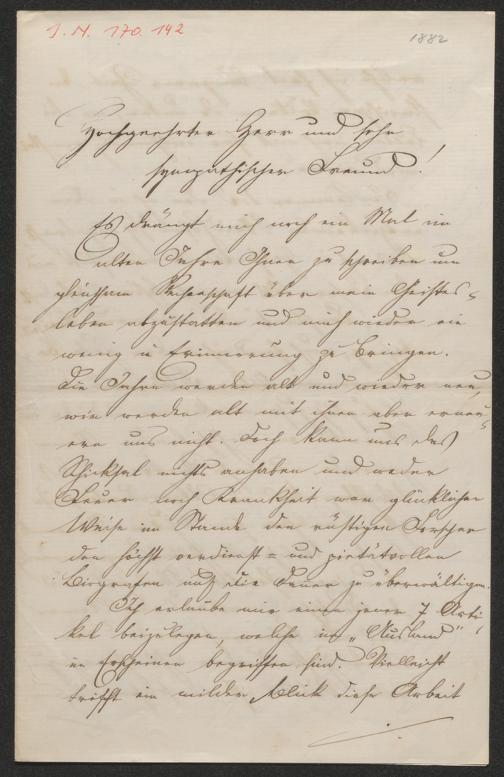 I. N. 170.142
1882
Hochgeehrter Herr und sehr
sympathischer Freund!
Es drängt mich noch ein Mal im
alten Jahre Ihnen zu schreiben um
gleichsam Rechenschaft über mein Geistes-
leben abzustatten und mich wieder ein
wenig in Erinnerung zu bringen.
Die Jahre werden alt und wieder neu,
wir werden alt mit ihnen aber erneu-
ern uns nicht. Doch kann uns das
Schicksal nichts anhaben und weder
Feuer noch Krankheit war glücklicher
Weise im Stande den rüstigen Forscher
den höchst verdienst- und pietätvollen
Biografen auf die Dauer zu überwältigen.
Ich erlaube mir einen jener 7 Arti-
kel beizulegen, welche im „Ausland"
im Erscheinen begriffen sind. Vielleicht
trifft ein milder Blick diese Arbeit